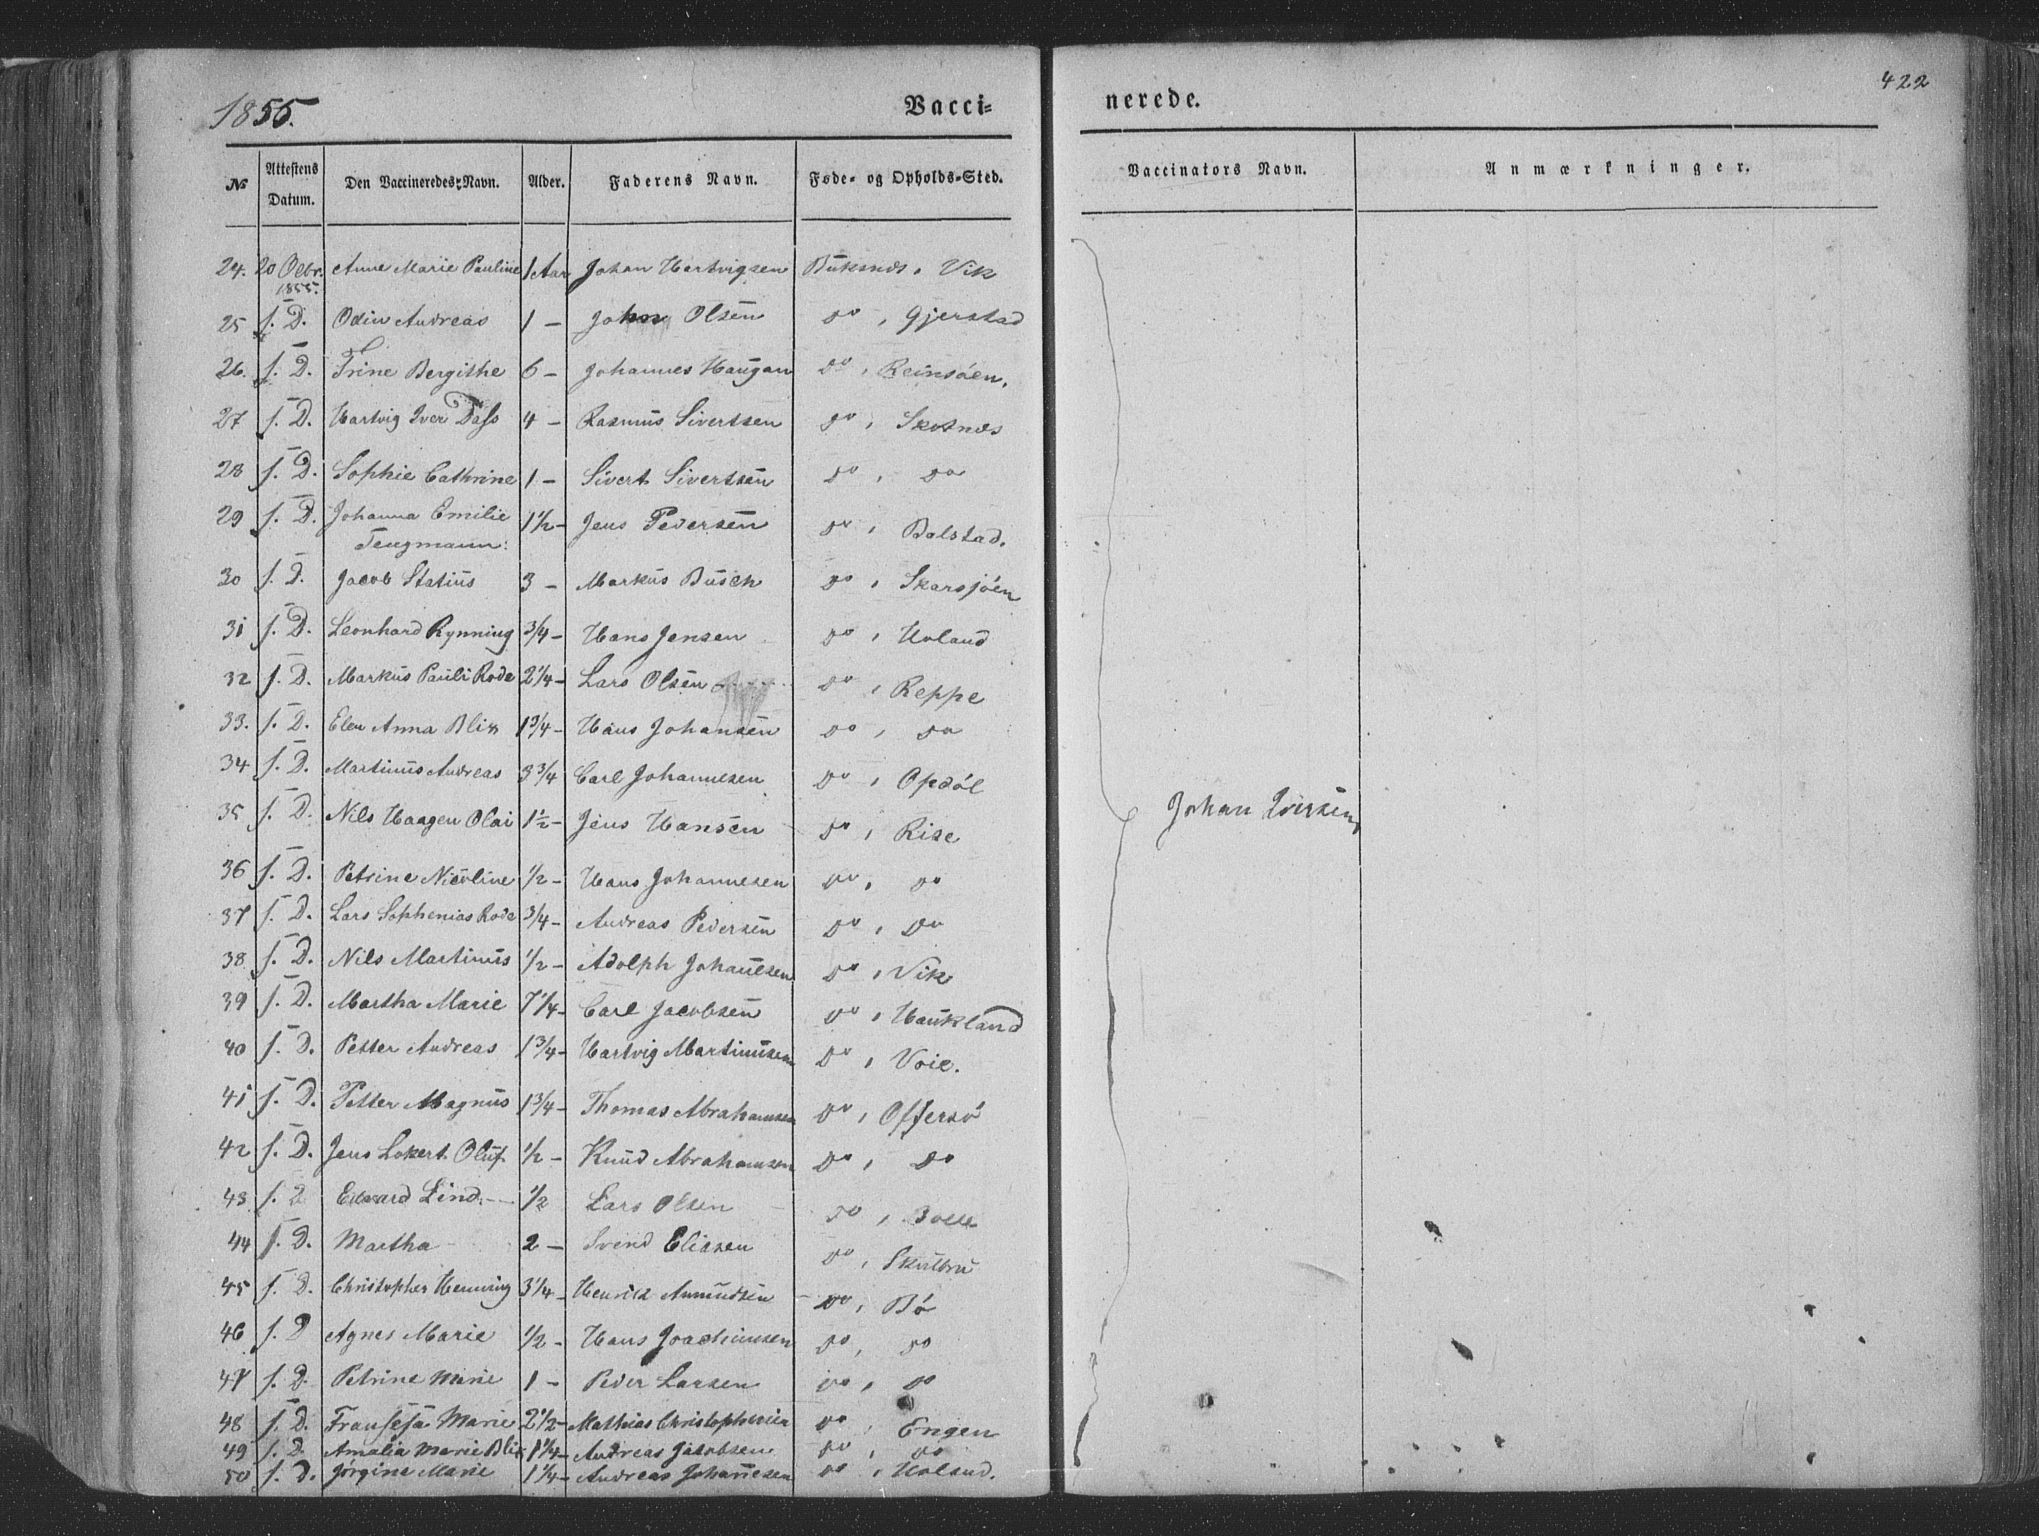 422
1855.
Vacci=
nerede.
№
Attestens Datum.
Den Vaccineredes Navn.
Alder.
Faderens Navn.
Føde= og Opholds=Sted.
Vaccinators Navn.
Anmærkninger.
24. 20 Octbr. 1855. Anne Marie Pauline 1 Aar Johan Hartvigsen Buksnæs, Vik
25 s. D. Odin Andreas 1 — John Olsen Do, Gjerstad
26. s. D. Trine Bergithe 6 — Johannes Haugan Do, Reinsøen.
27 s. D. Hartvig Iver Dass 4 — Rasmus Sivertsen Do, Skotnæs
28 s. D. Sophie Cathrine 1 — Sivert Sivertsen Do, Do
29 s. D. Johanna Emilie 1½ — Jens Pedersen Do, Balstad.
Tengmann:
30 s. D. Jacob Statius 3 — Markus Busch Do, Skarsjøen
31 s. D. Leonhard Rynning ¾ — Hans Jensen Do, Uoland
32 s. D. Markus Pauli Rode 2¼ — Lars Olsen Do, Reppe
33. s. D. Elen Anna Blix 1¾ — Hans Johansen Do, Do
34 s. D. Martinus Andreas 3¾ Carl Johannesen Do, Opdøl
35 s. D. Nils Haagen Olai 1½ — Jens Hansen Do, Rise
36 s. D. Petrine Nicoline ½ — Hans Johannesen Do, Do
37 s. D. Lars Sophenias Rode ¾ — Andreas Pedersen Do, Do
38 s. D. Nils Martinus ½ — Adolph Johannesen Do, Vik
39 s. D. Martha Marie 7¼ — Carl Jacobsen Do, Haukland
40 s. D. Petter Andreas 1¾ — Hartvig Martinussen Do, Voie.
41 s. D. Petter Magnus 1¾ — Thomas Abrahamsen Do, Offersø
42 s. D. Jens Lokert Oluf ½ — Knud Abrahamsen Do, Do
43 s. D Edvard Lind ½ Lars Olsen Do, Bolle
44 s. D. Martha 2 — Svend Eliasen Do, Skulbru
45 s. D. Christopher Henning 3¼ — Henrik Amundsen Do, Bø
46 s. D Agnes Marie ½ — Hans Joachimsen Do, Do
47 s. D. Petrine Marie 1 — Peder Larsen Do, Do
48 s. D. Fransesa Marie 2½ — Mathias Christophersen Do, Engen
49 s. D Amalia Marie Blix 1¼ — Andreas Jacobsen Do, Do
50 s. D. Jørgine Marie 1¼ — Andreas Johannesen Do, Uoland.
Johan Iversen